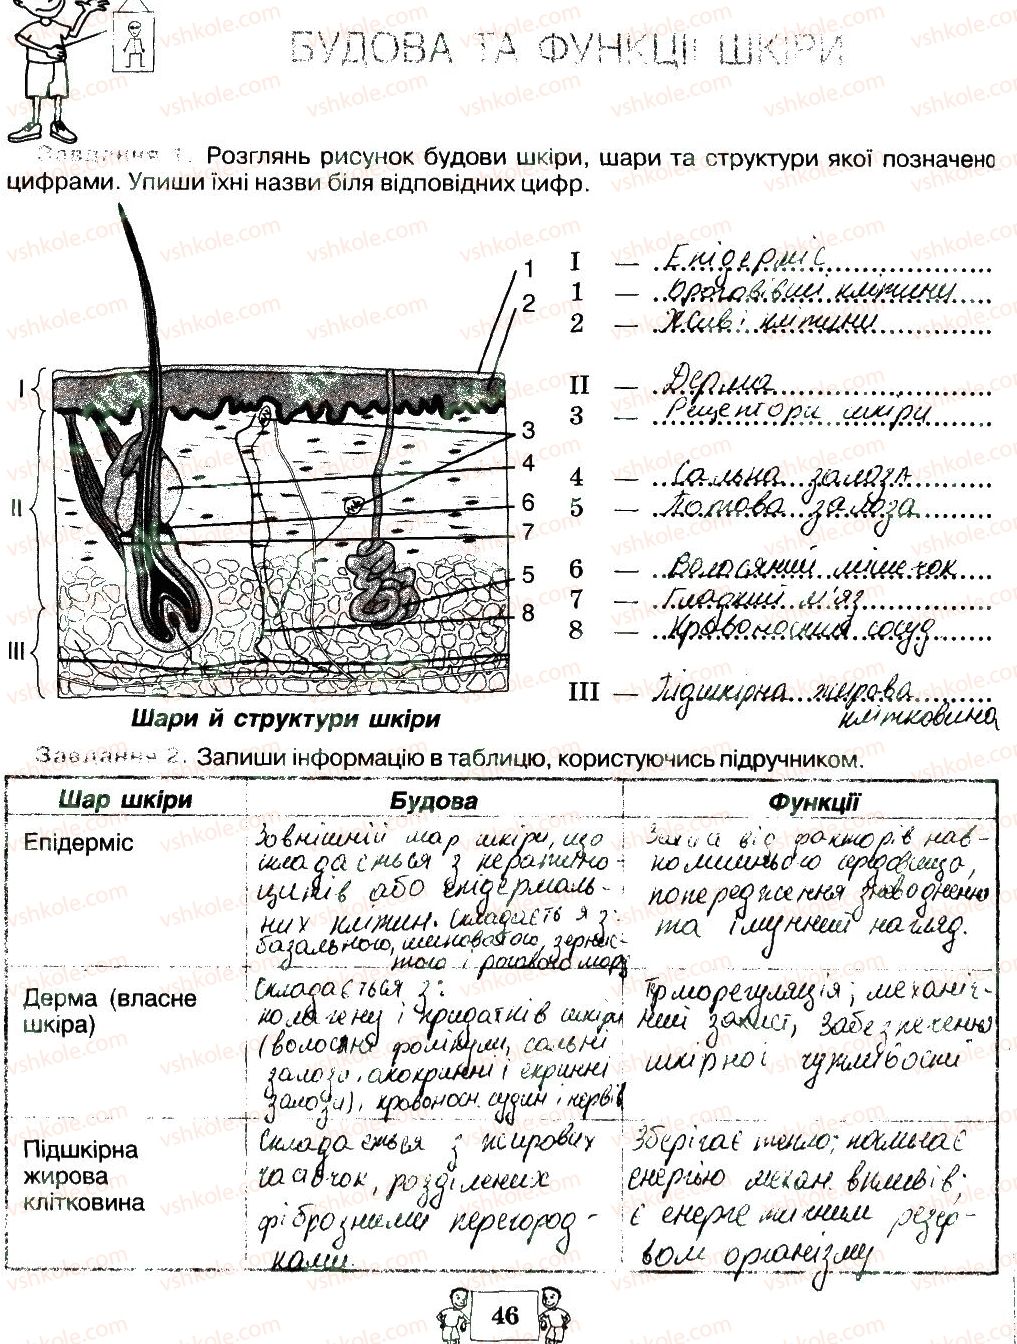 БУДОВА ТА ФУНКЦІЇ ШКІРИ
Завдання 1. Розглянь рисунок будови шкіри, шари та структури якої позначено
цифрами. Упиши їхні назви біля відповідних цифр.
I
II
III
1
2
3
4
6
7
5
8
I — Епідерміс
1 — Ороговівші клітини
2 — Живі клітини
II — Дерма
3 — Рецептори шкіри
4 — Сальна залоза
5 — Потова залоза
6 — Волосяний мішечок
7 — Гладкий м'яз
8 — Кровоносний сосуд
III — Підшкірна жирова
клітковина
Шари й структури шкіри
Завдання 2. Запиши інформацію в таблицю, користуючись підручником.
Шар шкіри Будова Функції
Епідерміс
Зовнішній шар шкіри, що
складається з кератино-
цитів або епідермаль-
них клітин. Складаєть я з:
базального, шиповатого, зернис-
того і рогового шару
Захист від факторів нав-
колишнього середовища,
попередження зневоднення
та імунний нагляд.
Дерма (власне
шкіра)
Складається з:
колагену і придатків шкіри
(волосяні фолікули, сальні
залози, апокринні і екринні
залози), кровоносн. судин і нервів
Терморегуляція; механіч-
ний захист, забезпечення
шкірної чутливості
Підшкірна
жирова
клітковина
Складається з жирових
часточок, розділених
фіброзними перегород-
ками.
Зберігає тепло;
енергію механ. впливів;
є енергетичним резер-
вом організму
46
vshkole.com